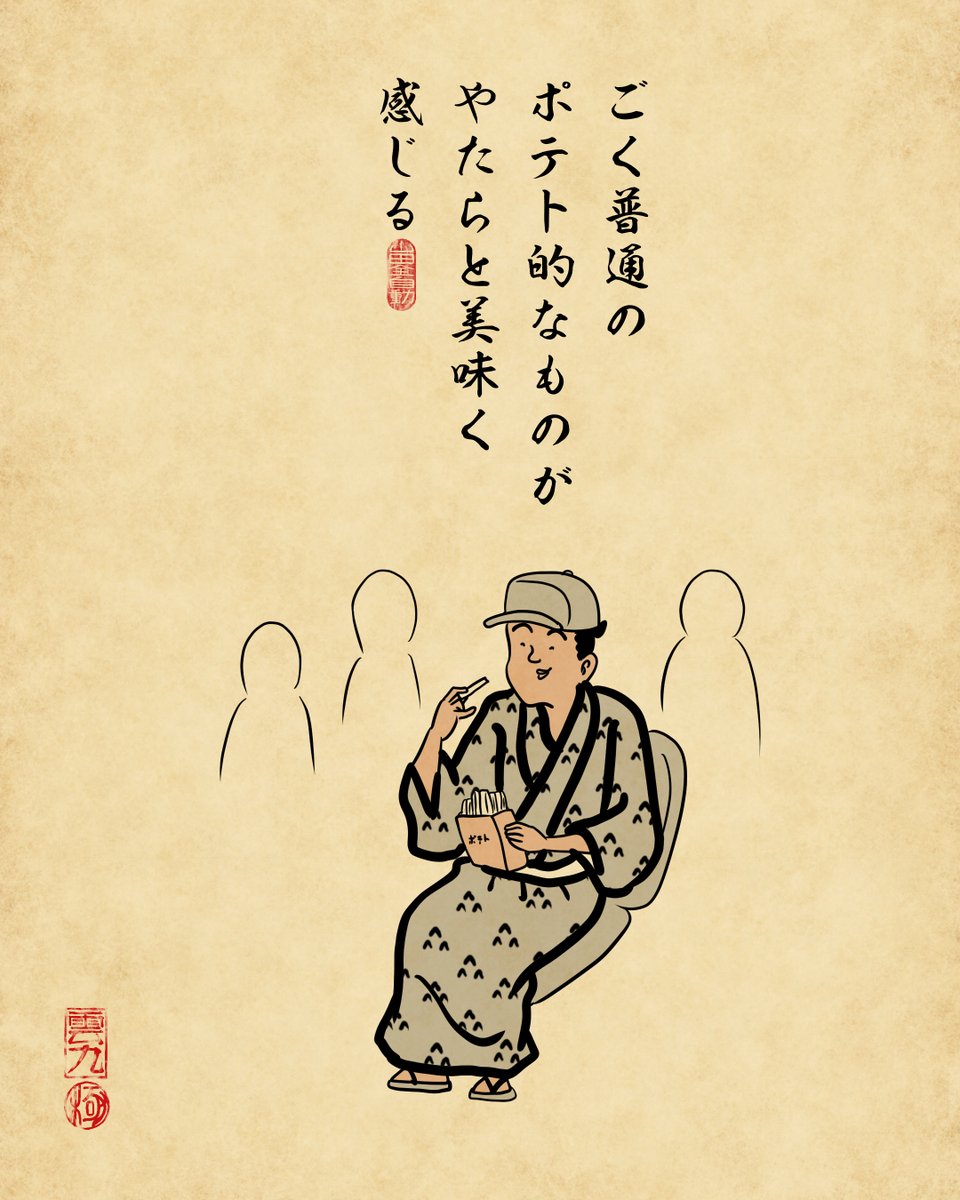 ごく普通の
ポテト的なものが
やたらと美味く
感じる
ポテト
雲九
極